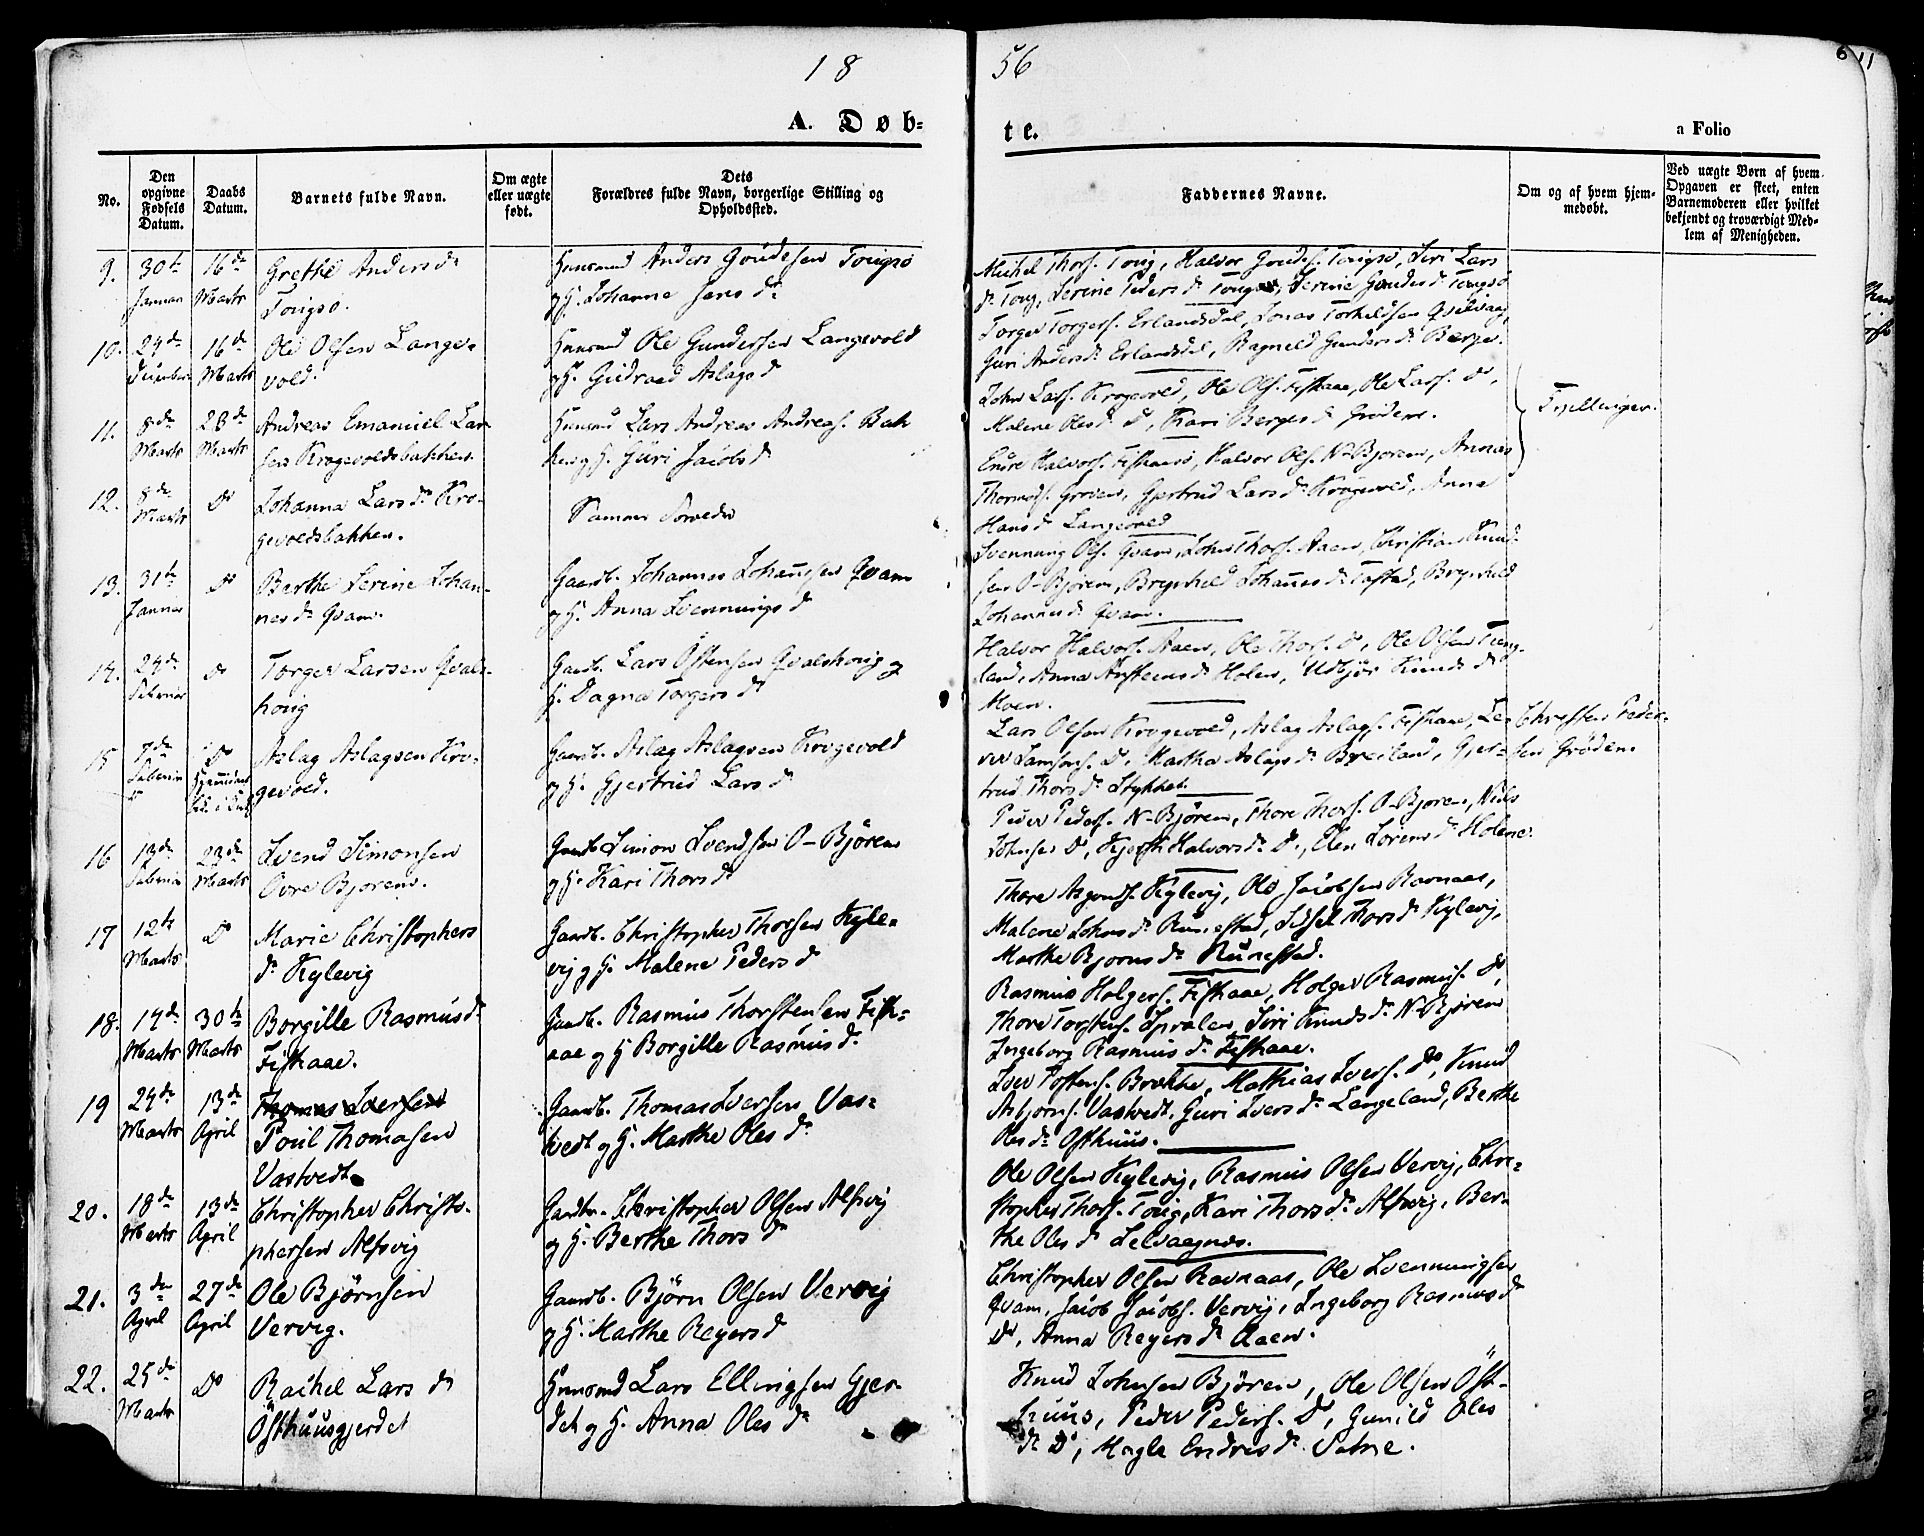 18 56
6 11
A. Døb- te.
a Folio
No.
Den opgivne Fødsels Datum.
Daabs Datum.
Barnets fulde Navn.
Om ægte eller uægte født.
Dets Forældres fulde Navn, borgerlige Stilling og Opholdssted.
Faddernes Navne.
Om og af hvem hjem-
medøbt.
Ved uægte Børn af hvem
Opgaven er skeet, enten
Barnemoderen eller hvilket
bekjendt og troværdigt Med-
lem af Menigheden.
9. 30te Januar 16de Marts
Grethe Anders d:
Tougsø.
Huusmd Anders Goudesen Tougsø
og H. Johanne Jans d:
Michel Thors. Toug, Halvor Goudes. Tougsø, Siri Lars
d: Toug, Serine Peders d: Toug, Serine Goudes d: Tougsø
10. 24de 16de Marts
Ole Olsen Lange-
vold.
Huusmd Ole Gundersen Langevold
og H. Gudrand Aslags d
Torger Torgers. Erlandsdal, Jonas Torkildsen Qvilvaag,
Guri Anders d: Erlandsdal, Ragnild Gunders d: Berge.
11. 8de Marts 23de Marts
Andreas Emanuel Lar-
sen Krogevoldsbakken
Huusmd Lars Andreas Andreas. Bak
ken og H. Guri Jacobs d:
John Lars. Krogevold, Ole Ols. Fiskaae, Ole Lars. Do,
Malene Oles d: Do, Kari Berges d: Grödem.
Tvillinger.
12. 8de Marts Do
Johanna Lars d: Kro-
gevoldsbakken.
Samme Forældre
Endre Halvors. Fiskaae, Halvor Ols. N-Bjørem, Annas
Thormods. Groven, Gjertrud Lars d: Krogevold, Anna
Hans d: Langevold
13. 31te Januar Do
Berthe Serine Johan-
nes d: Qvam.
Gaardb. Johannes Johannsen Qvam
og H. Anna Svennungs d
Svennung Ols. Qvam, John Thors. Aaen, Christian Knud-
sen O-Bjørem, Brynhild Johannes d: Tøstad, Brynhild
Johannes d: Qvam.
14. 24de Februar Do
Torger Larsen Qvals-
houg
Gaardb. Lars Östensen Qvalshoug og
H. Dagna Torgers d:
Halvor Halvors. Aaen, Ole Thors. Do, Ole Olsen Tveg-
land, Anna Austeens d: Holen, Udbjør Knuds d:
Moen.
15 7de Do
Aslag Aslagsen Kro-
gevold.
Gaardb. Aslag Aslagsen Krogevold
og H. Gjertrud Lars d:
Lars Olsen Krogevold, Aslag Aslags. Fiskaae,
Samsons. Do. Martha Aslags d: Breiland, Gjer-
trud Thors d: Stykket.
Christen Peder-
sen Gröden.
16 13de Februar 23de Marts
Svend Simonsen
Övre Bjørem.
Gaardb. Simon Svendsen O-Bjørem
og H. Kari Thors d:
Peder Peders. N-Bjørem, Thore Thors. O-Bjørem, Niels
Johnsen Do, Kjersti Halvors d: Do, Elen Sørens d: Holene.
17 12te Marts Do
Marie Christophers
d: Kylevig
Gaardb. Christopher Thorsen Kyle-
vig og H. Malene Peders d
Thore Asgouds. Kylevig, Ole Jacobsen Ravnaas,
Malene Johns d: Runestad, Sissel Thors d: Kylevig,
Marthe Bjorns d: Runestad.
18. 14de Marts 30te Marts
Borgille Rasmus d:
Fiskaae.
Gaardb. Rasmus Thorstensen Fisk-
aae og H Borgille Rasmus d:
Rasmus Holgers. Fiskaae, Holger Rasmus. Do,
Thore Torstens. Spralen, Siri Knuds d: N-Bjørem
Ingeborg Rasmus d: Fiskaae.
19 24de Marts 13de April
Thomas Iversen
Poul Thomasen
Vastvedt.
Gaardb. Thomas Iversen Vas-
tvedt og H. Marthe Oles d:
Iver Tostens. Brekke, Mathias Ivers. Do, Knud
Asbjorns. Vastvedt, Guri Ivers d: Langeland, Berthe
Oles d: Osthuus.
20. 18de Marts 13de April
Christopher Christo-
phersen Alfsvig
Gaardbr. Christopher Olsen Alfsvig
og H. Berthe Thors d:
Ole Olsen Kylevig, Rasmus Olsen Vervig, Chri-
stopher Thors. Toug, Kari Thors d: Alfsvig, Ber-
the Oles d: Selvaagnes.
21. 3de April 27de April
Ole Björnsen
Vervig.
Gaardb. Björn Olsen Vervig
og H. Marthe Reyers d
Christopher Olsen Ravnaas, Ole Svenningsen
Qvam, Jacob Jacobs. Vervig, Ingeborg Rasmus d:
Do, Anna Reyers d: Aaen.
22. 25de Marts Do
Rachel Lars d:
Östhuusgjerdet
Huusmd Lars Ellingsen Gjer-
det og H. Anna Oles d:
Knud Johnsen Bjørem, Ole Olsen Öst-
huus, Peder Peders. Do, Gunild Oles
d: Do, Magle Endres d: Satne.